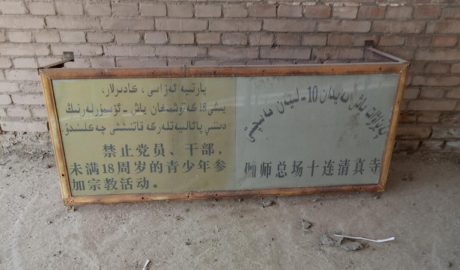 پارتىيە ئەزاسى، كادىرلار،
يېشى 18 گە توشمىغان ياش - ئۆسمۈرلەرنىڭ
دىنىي پائالىيەتلەرگە قاتنىشىشى چەكلىنىدۇ
禁止党员、干部、
未满18周岁的青少年参
加宗教活动。
باش مەيدان 10 - ليەن
伽师总场十连清真寺